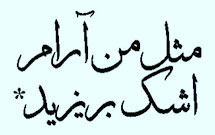 مثل من آرام
اشک بریزید*